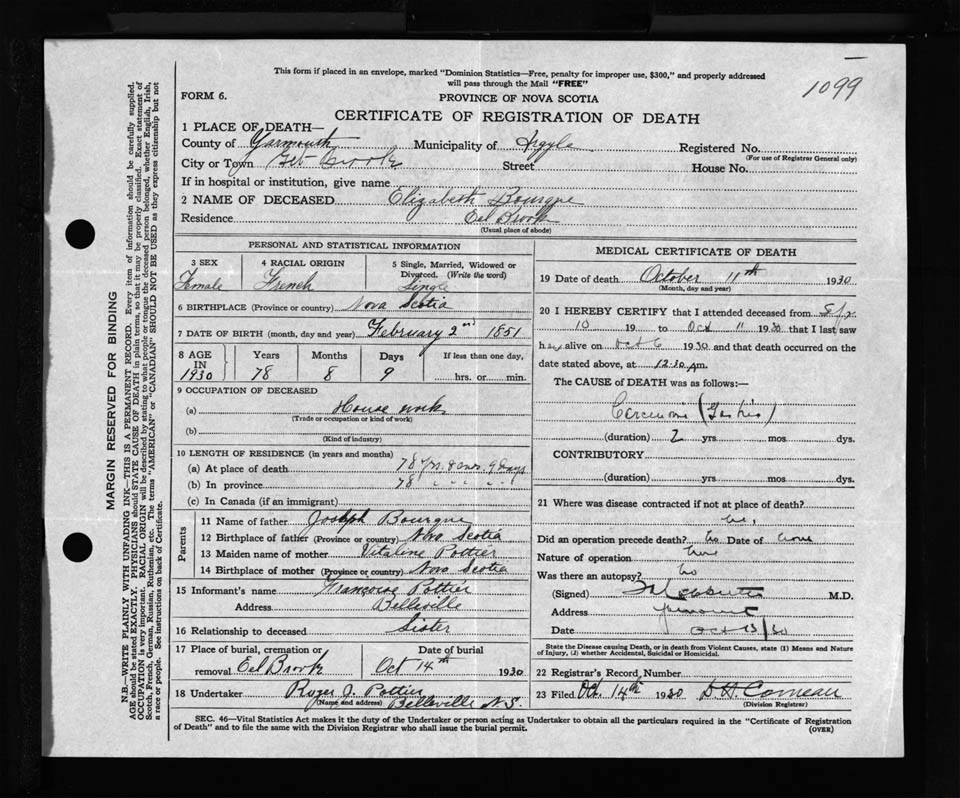 This form if placed in an envelope, marked "Dominion Statistics—Free, penalty for improper use, $300," and properly addressed
will pass through the Mail "FREE"
1099
FORM 6.
PROVINCE OF NOVA SCOTIA
CERTIFICATE OF REGISTRATION OF DEATH
1 PLACE OF DEATH—
County of Yarmouth Municipality of Argyle Registered No.
(For use of Registrar General only)
City or Town Brook Street House No.
If in hospital or institution, give name
2 NAME OF DECEASED Elizabeth Bourque
Residence Eel Brook
(Usual place of abode)
PERSONAL AND STATISTICAL INFORMATION
3 SEX 4 RACIAL ORIGIN 5 Single, Married, Widowed or
Divorced. (Write the word)
Female French Single
6 BIRTHPLACE (Province or country) Nova Scotia
7 DATE OF BIRTH (month, day and year) February 2nd 1851
8 AGE Years Months Days If less than one day,
IN
1930 78 8 9 hrs. or min.
9 OCCUPATION OF DECEASED
(a) House work
(Trade or occupation or kind of work)
(b)
(Kind of industry)
10 LENGTH OF RESIDENCE (in years and months)
(a) At place of death 78 yrs. 8 mos. 9 days
(b) In province 78 " " " "
(c) In Canada (if an immigrant)
Parents
11 Name of father Joseph Bourque
12 Birthplace of father (Province or country) Nova Scotia
13 Maiden name of mother Vitaline Pottier
14 Birthplace of mother (Province or country) Nova Scotia
15 Informant's name Françoise Pottier
Address Belleville
16 Relationship to deceased Sister
17 Place of burial, cremation or Date of burial
removal Eel Brook Oct 14th 1930
18 Undertaker Roger J. Pottier
(Name and address) Belleville N.S.
MEDICAL CERTIFICATE OF DEATH
19 Date of death October 11th 1930
(Month, day and year)
20 I HEREBY CERTIFY that I attended deceased from
10 19 to Oct 11 1930 that I last saw
her alive on Oct 6 1930 and that death occurred on the
date stated above, at 12.30 pm.
The CAUSE OF DEATH was as follows:—
(duration) 2 yrs mos dys.
CONTRIBUTORY
(duration) yrs mos dys.
21 Where was disease contracted if not at place of death?
Did an operation precede death? no Date of
Nature of operation
Was there an autopsy? no
(Signed) M.D.
Address Yarmouth
Date Oct 13/30
State the Disease causing Death, or in death from Violent Causes, state (1) Means and Nature
of Injury, (2) whether Accidental, Suicidal or Homicidal.
22 Registrar's Record Number
23 Filed Oct. 14th 1930 D H Comeau
(Division Registrar)
SEC. 46—Vital Statistics Act makes it the duty of the Undertaker or person acting as Undertaker to obtain all the particulars required in the "Certificate of Registration
of Death" and to file the same with the Division Registrar who shall issue the burial permit.
(OVER)
MARGIN RESERVED FOR BINDING
N.B.—WRITE PLAINLY WITH UNFADING INK—THIS IS A PERMANENT RECORD. Every item of information should be carefully supplied.
AGE should be stated EXACTLY. PHYSICIANS should STATE CAUSE OF DEATH in plain terms, so that it may be properly classified. Exact statement of
OCCUPATION is very important. RACIAL ORIGIN will be described by stating to what people or tongue the deceased person belonged, whether English, Irish,
Scotch, French, German, Russian, Ruthenian, etc. The terms "AMERICAN" or "CANADIAN" SHOULD NOT BE USED as they express citizenship but not
a race or people. See instructions on back of Certificate.